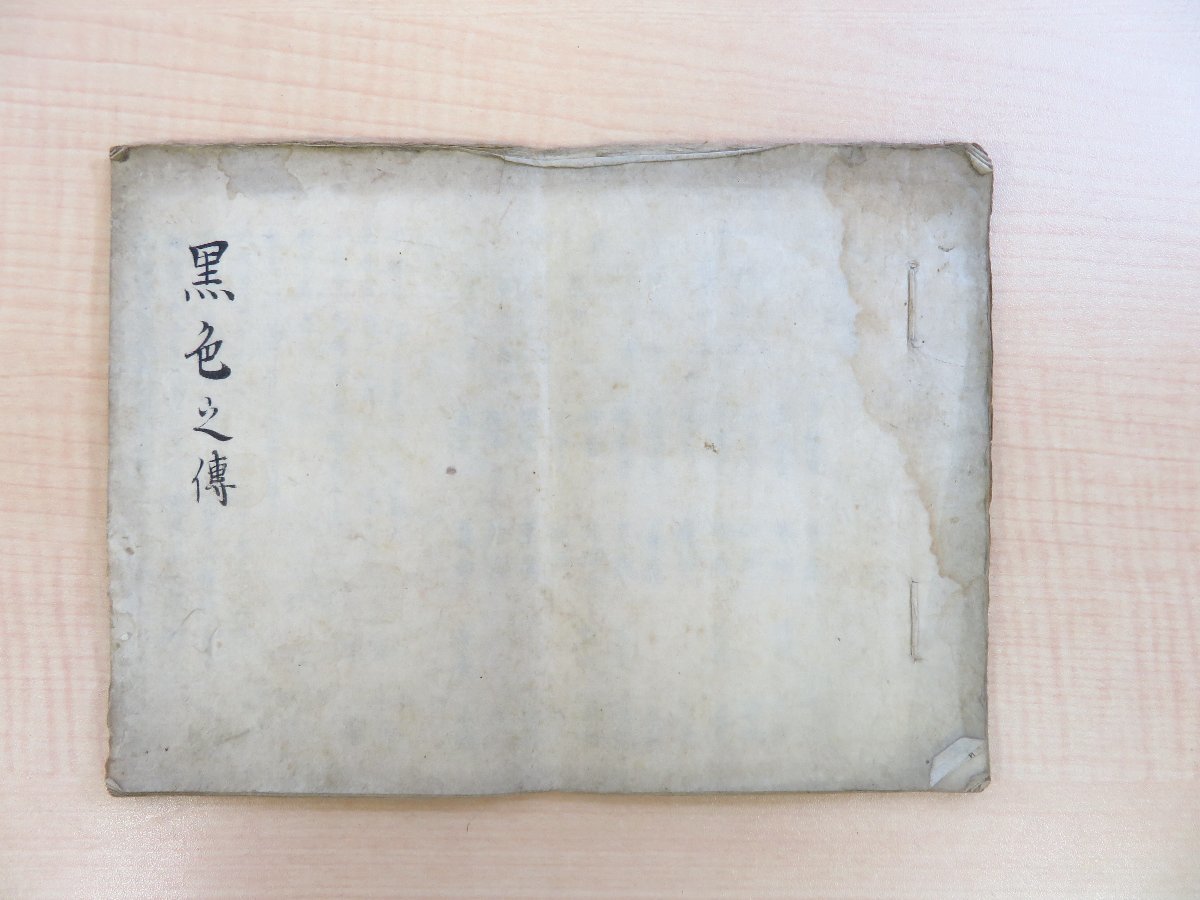 黒色之傳